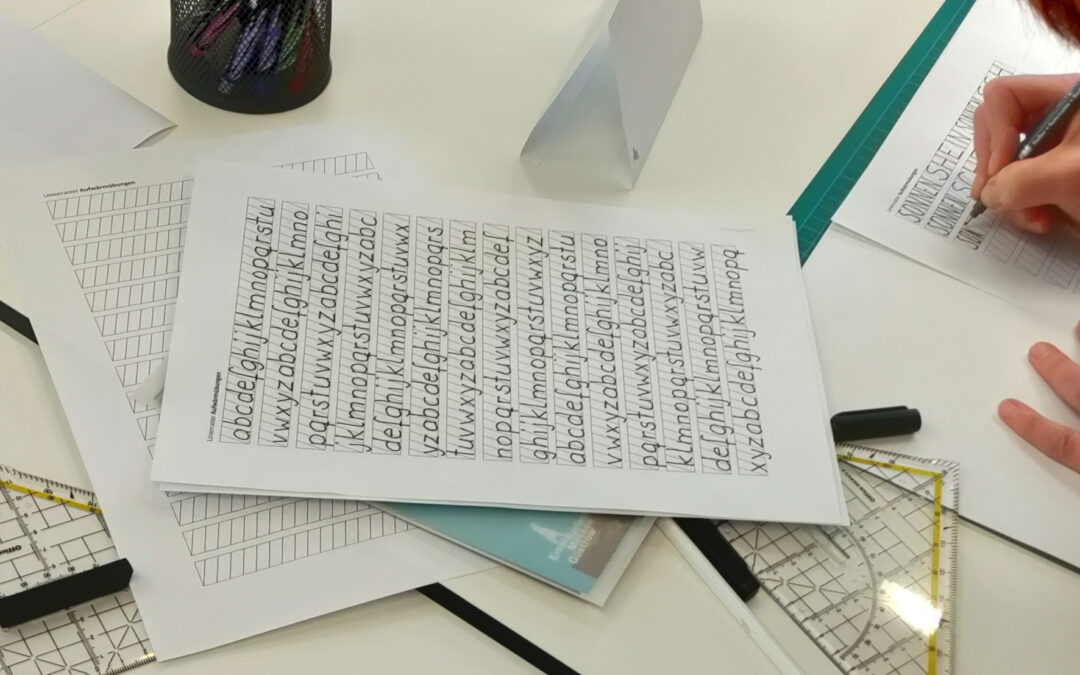 Linienraster Aufwärmübungen
Linienraster Aufwärmübungen
abcdefghijklmnopqrstu
vwxyzabcdefghijklmno
pqrstuvwxyzabcdefghi
jklmnopqrstuvwxyzabc
defghijklmnopqrstuvwx
yzabcdefghijklmnopqrs
tuvwxyzabcdefghijklm
nopqrstuvwxyzabcdef
ghijklmnopqrstuvwxyz
abcdefghijklmnopqrstu
vwxyzabcdefghijklmno
pqrstuvwxyzabcdefghij
klmnopqrstuvwxyzabc
defghijklmnopqrstuvw
xyzabcdefghijklmnopq
Linienraster Aufwärmübungen
SONNENSHEIN